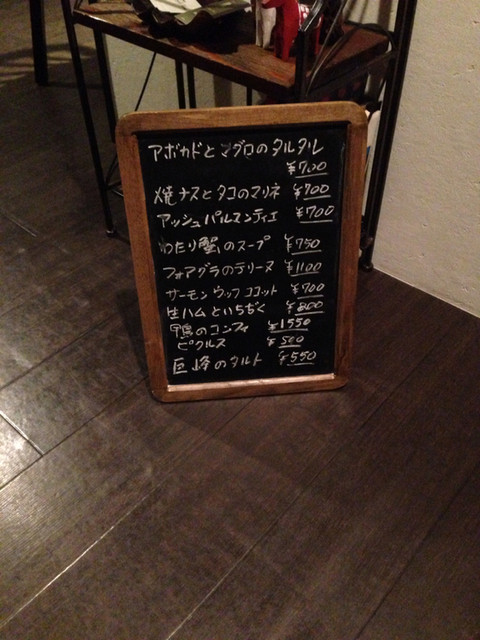 アボカドとマグロのタルタル
¥700
焼ナスとタコのマリネ ¥700
アッシュパルマンティエ ¥700
わたり蟹のスープ ¥750
フォアグラのテリーヌ ¥1100
サーモンウッフココット ¥700
生ハムといちぢく ¥800
鴨のコンフィ ¥1550
ピクルス ¥500
巨峰のタルト ¥550